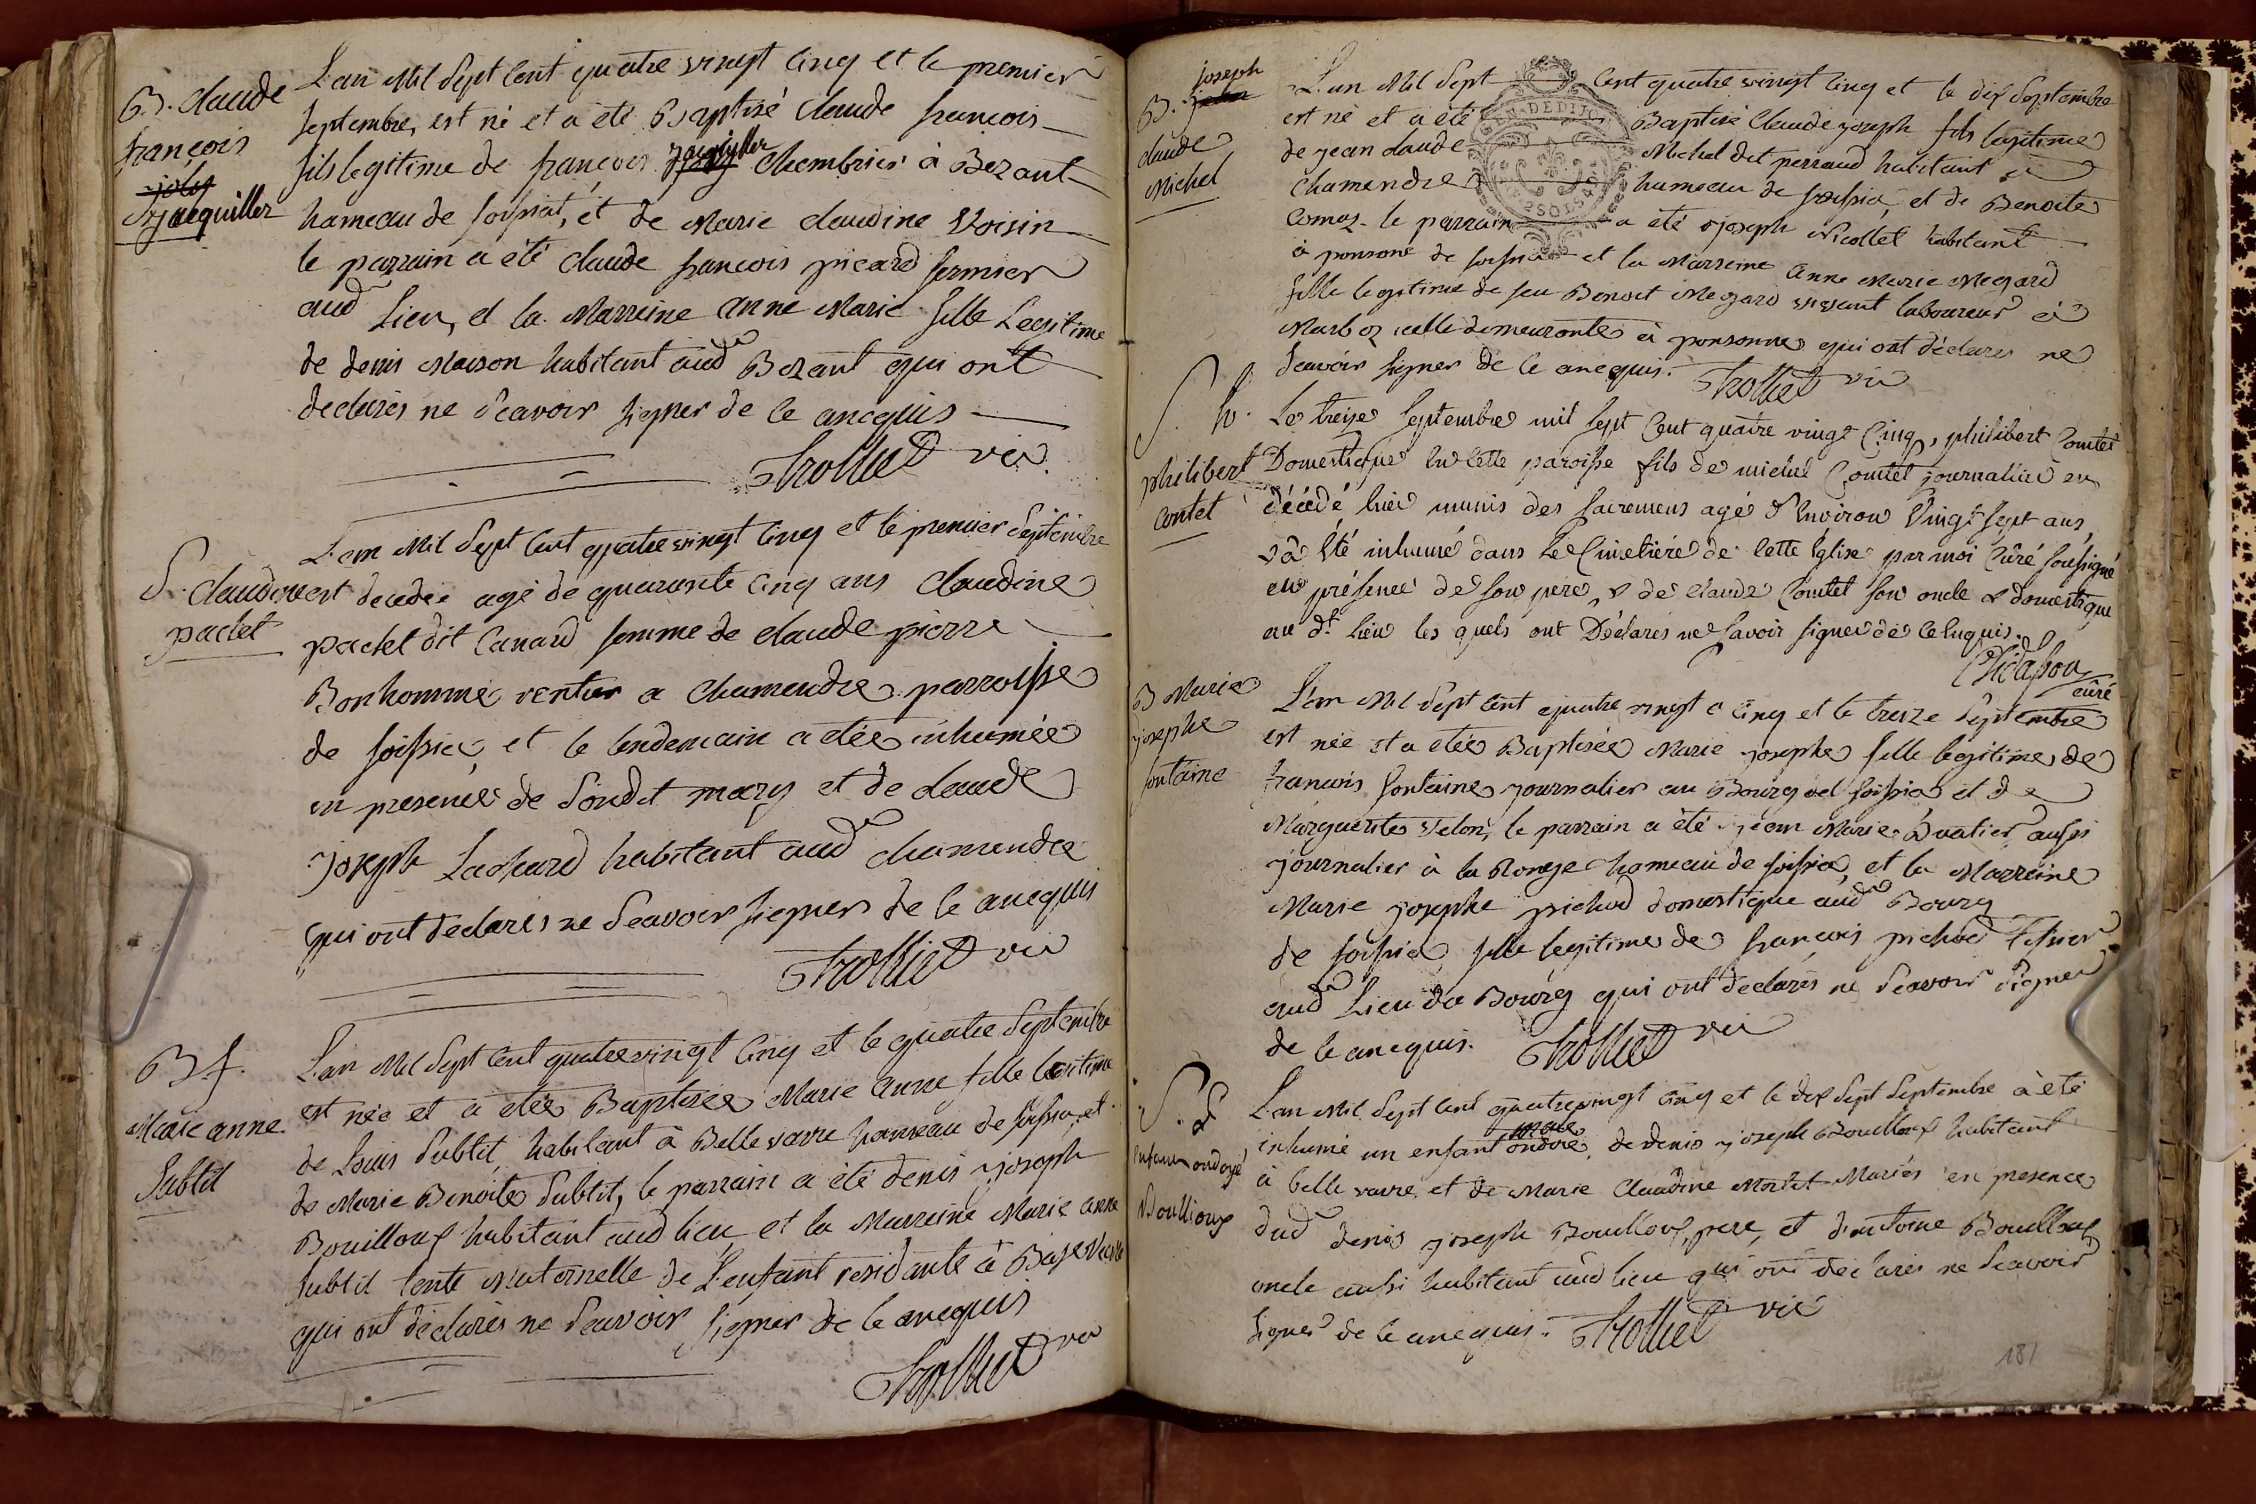 B. claude
françois
joly
jacquiller
L'an Mil Sept Cent quatre vingt Cinq et le premier
Septembre, est né et a été Baptisé Claude françois
fils legitime de françois jacquiller Chambrier à Bezant
hameau de soissiat, et de Marie Claudine Voisin
le parrain a été Claude françois picard fermier
aud Lieu, et la Marreine anne Marie fille Legitime
de denis Maison habitant aud Bezant qui ont
declarés ne sçavoir signer de ce anequis
Trolliet vic.
S. Claudine
paclet
L'an Mil Sept Cent quatre vingt Cinq et le premier Septembre
est decedée agé de quarante Cinq ans Claudine
paclet dit Canard femme de claude pierre
Bonhomme rentier a Chamandre parroisse
de soissia, et le lendemain a étée inhumée
en presence de Sondit mary et de claude
joseph Lachard habitant aud chamandre
qui ont declarés ne sçavoir signer de ce anequis
Trolliet vic
B f.
Marie anne
Subtit
L'an Mil Sept Cent quatre vingt Cinq et le quatre Septembre
est née et a étée Baptisée Marie Anne fille legitime
de Louis Subtit, habitant à Belle vavre hameau de soissia, et
de Marie Benoite Subtit, le parrain a été denis joseph
Bouilloux habitant aud lieu et la Marreine Marie anne
Subtil tente Maternelle de L'enfant residante à
qui ont declarés ne sçavoir signer de ce anequis
Trolliet vic
joseph
B.
claude
Michel
L'an Mil Sept Cent quatre vingt Cinq et le dix Septembre
est né et a été Baptisé Claude joseph fils legitime
de jean claude Michel dit perraud habitant a
Chamandre hameau de soissia, et de Benoite
Comas. le parrain a été joseph Nicollet habitant
à ponsone de soissia et la Marreine anne Marie Megard
fille legitime de feu Benoit Megard vivant laboureur à
Marboz icelle demeurante à ponsonne qui ont déclarés ne
sçavoir signer de ce anequis.
Trolliet vic
S. h.
philibert
contet
Le treize Septembre mil sept Cent quatre vingt Cinq, philibert Comtet
Domestique en cette paroisse fils de michel Comtet journallier en
décédé hier munis des sacremens agé d'Environ Vingt Sept ans,
a Eté inhumé dans Le Cimetiére de cette Eglise par moi Curé soussigné
en présence de son pére, & de claude Comtet son oncle & domestique
au dt. Lieu les quels ont Déclarés ne savoir signer de ce Enquis.
curé
B Marie
josephe
fontaine
L'an Mil Sept Cent quatre vingt Cinq et le treize Septembre
est née et a étée Baptisée Marie josephe fille legitime de
françois fontaine journalier au Bourg de soissia et de
Marguerite Velon, le parrain a été jean Marie aussi
journalier à la Ronge hameau de soissia, et la Marreine
Marie josephe pichod domestique aud Bourg
de soissia, fille legitime de françois pichod
aud Lieu du Bourg qui ont declarés ne sçavoir signer
de ce anequis.
Trolliet vic
S.
enfant ondoyé
Boullioux
L'an Mil Sept Cent quatre vingt Cinq et le dix Sept Septembre à été
male
inhumé un enfant ondoié, de denis joseph Bouilloux habitant
à belle vavre, et de Marie Claudine Mortet Mariés en presence
dud denis joseph Bouilloux, pere, et d'antoine Bouilloux
oncle aussi habitant aud lieu qui ont declarés ne sçavoir
signer de ce anequis.
Trolliet vic
181